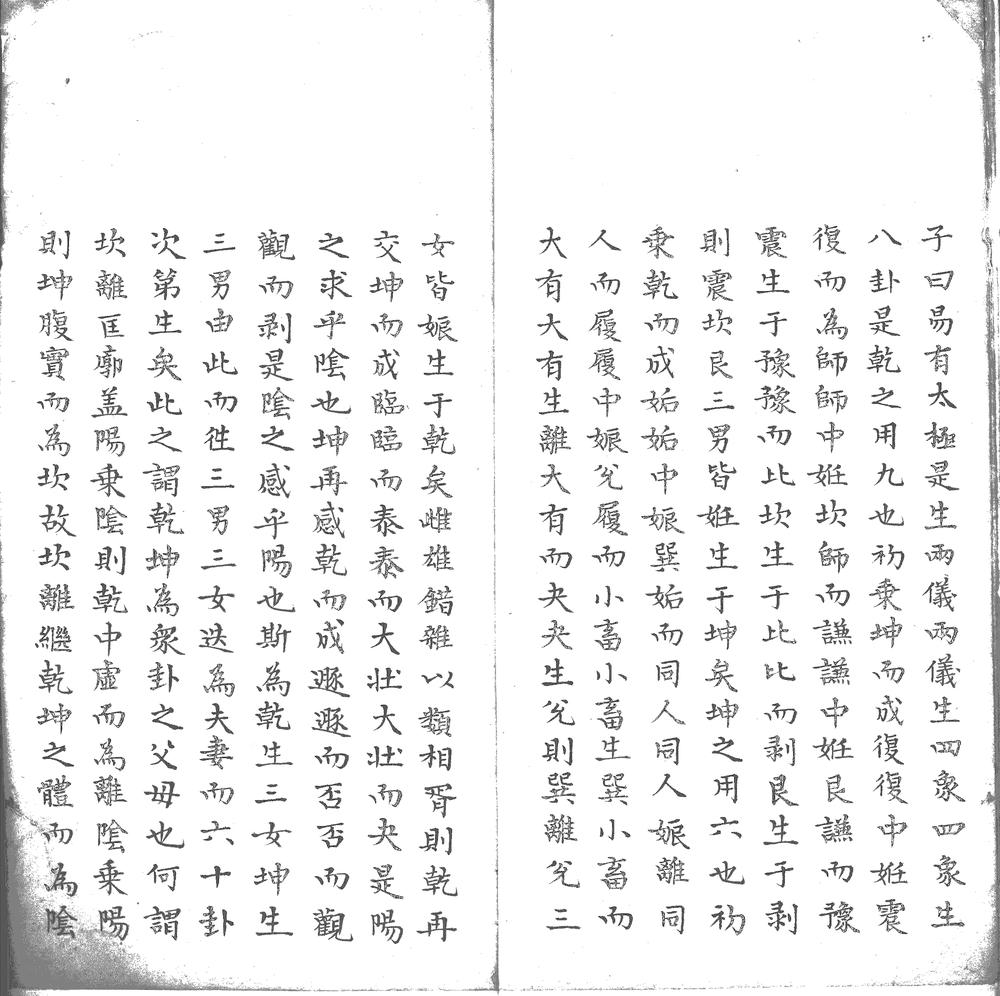 子曰易有太極是生兩儀兩儀生四象四象生
八卦是乾之用九也初乘坤而成復復中妊震
復而為師師中妊坎師而謙謙中妊艮謙而豫
震生于豫豫而比坎生于比比而剥艮生于剥
則震坎艮三男皆妊生于坤矣坤之用六也初
乘乾而成姤姤中娠巽姤而同人同人娠離同
人而履履中娠兊履而小畜小畜生巽小畜而
大有大有生離大有而夬夬生兊則巽離兊三
女皆娠生于乾矣雌雄錯雜以類相胥則乾再
交坤而成臨臨而泰泰而大壯大壯而夬是陽
之求乎陰也坤再感乾而成遯遯而否否而觀
觀而剥是陰之感乎陽也斯為乾生三女坤生
三男由此而徃三男三女迭為夫妻而六十卦
次第生矣此之謂乾坤為衆卦之父母也何謂
坎離匡廓盖陽乗陰則乾中虛而為離陰乗陽
則坤腹實而為坎故坎離繼乾坤之體而為陰